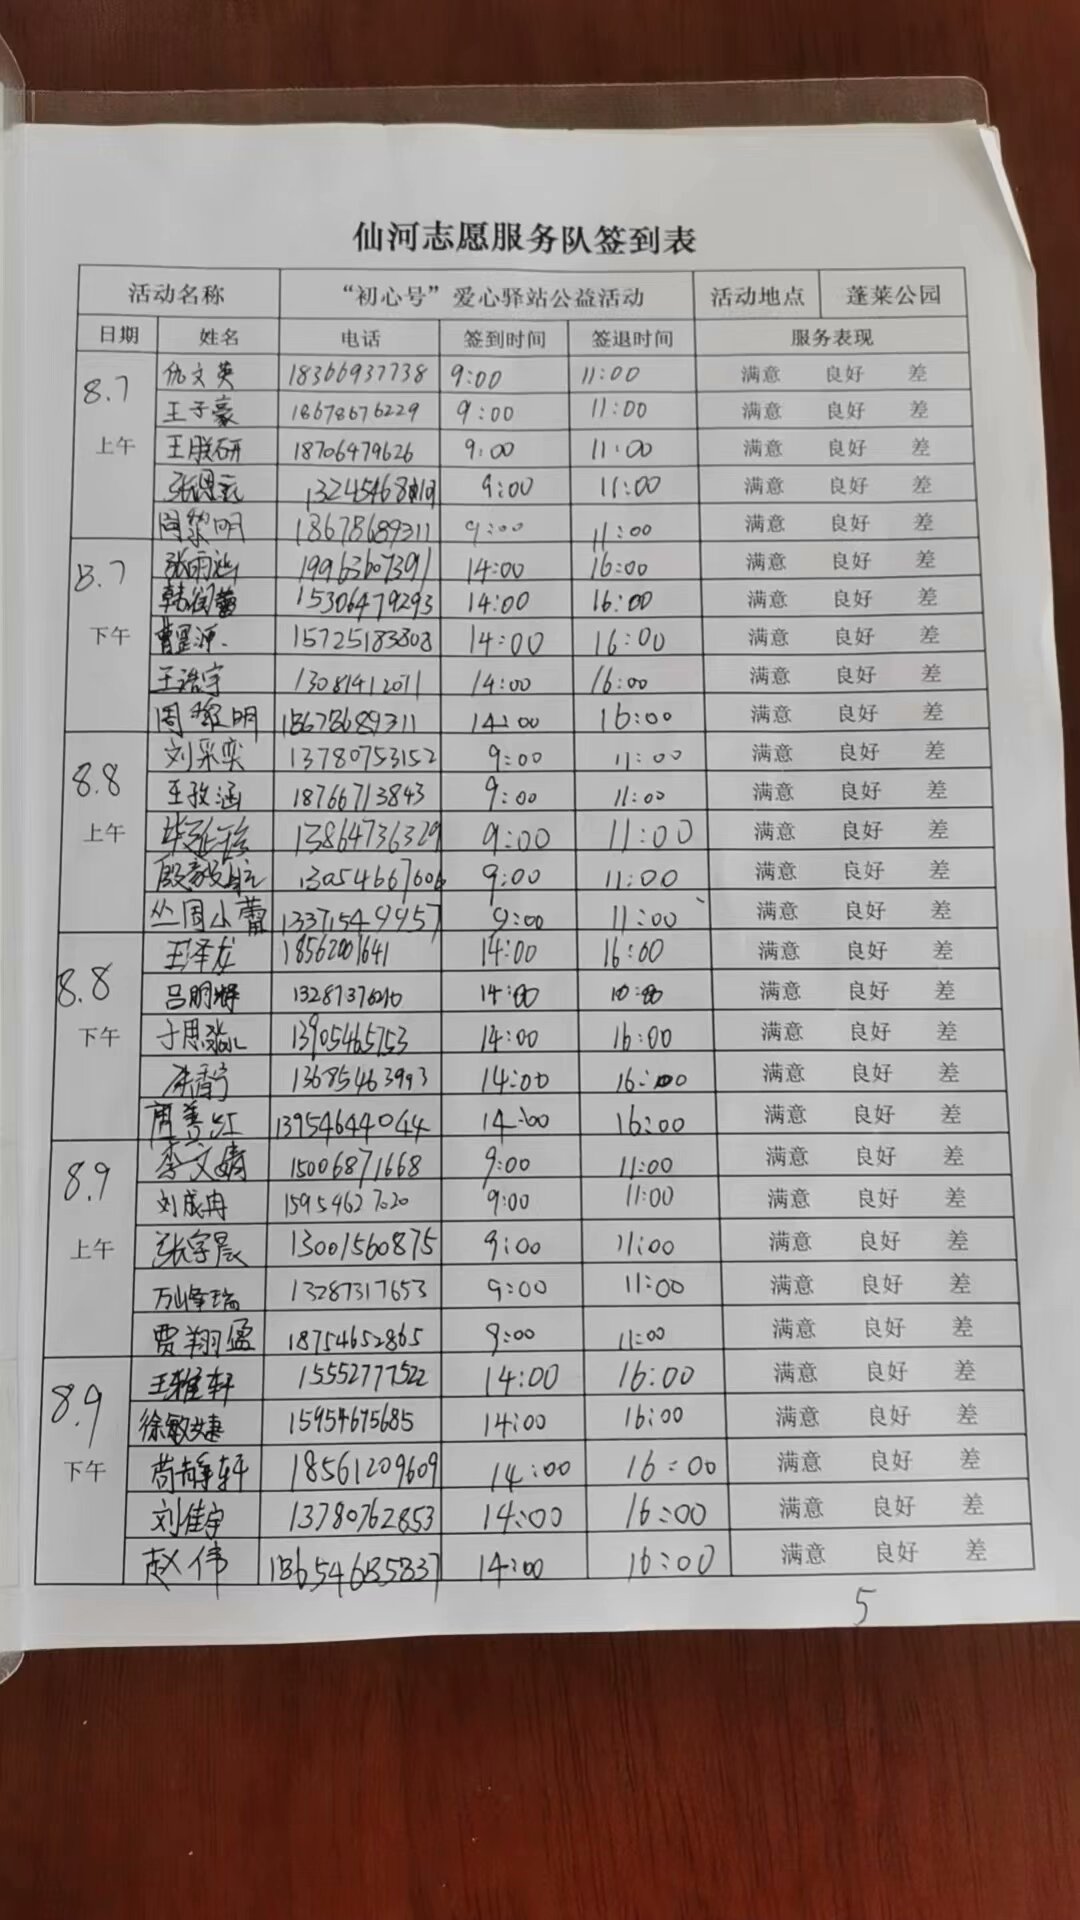 仙河志愿服务队签到表
活动名称 “初心号”爱心驿站公益活动 活动地点 蓬莱公园
日期 姓名 电话 签到时间 签退时间 服务表现
8.7 仇文英 18366937738 9:00 11:00 满意 良好 差
王子豪 18678676229 9:00 11:00 满意 良好 差
上午 王 研 18706479626 9:00 11:00 满意 良好 差
张 9:00 11:00 满意 良好 差
周黎明 18678689311 9:00 11:00 满意 良好 差
8.7 张雨 19963607391 14:00 16:00 满意 良好 差
韩润蕾 15306479293 14:00 16:00 满意 良好 差
下午 曹星源 15725183808 14:00 16:00 满意 良好 差
王浩宇 13081412011 14:00 16:00 满意 良好 差
周黎明 18678689311 14:00 16:00 满意 良好 差
刘采奕 13780753152 9:00 11:00 满意 良好 差
8.8 王孜涵 18766713843 9:00 11:00 满意 良好 差
上午 毕延珍 13864736329 9:00 11:00 满意 良好 差
殷毅航 13054667606 9:00 11:00 满意 良好 差
丛周小蕾 13371549957 9:00 11:00 满意 良好 差
王泽龙 18562001641 14:00 16:00 满意 良好 差
8.8 吕明辉 14:00 满意 良好 差
下午 于思 13905465753 14:00 16:00 满意 良好 差
13685463993 14:00 16:00 满意 良好 差
周善红 13954644044 14:00 16:00 满意 良好 差
8.9 李文婧 15006871668 9:00 11:00 满意 良好 差
刘成冉 15954627020 9:00 11:00 满意 良好 差
上午 张宇晨 13001560875 9:00 11:00 满意 良好 差
万峰瑞 13287317653 9:00 11:00 满意 良好 差
贾翔孟 18754652865 9:00 11:00 满意 良好 差
8.9 王雅轩 15552777522 14:00 16:00 满意 良好 差
徐敏婕 15954675685 14:00 16:00 满意 良好 差
下午 苟静轩 18561209609 14:00 16:00 满意 良好 差
刘佳宇 13780762853 14:00 16:00 满意 良好 差
赵伟 18654685837 14:00 16:00 满意 良好 差
5